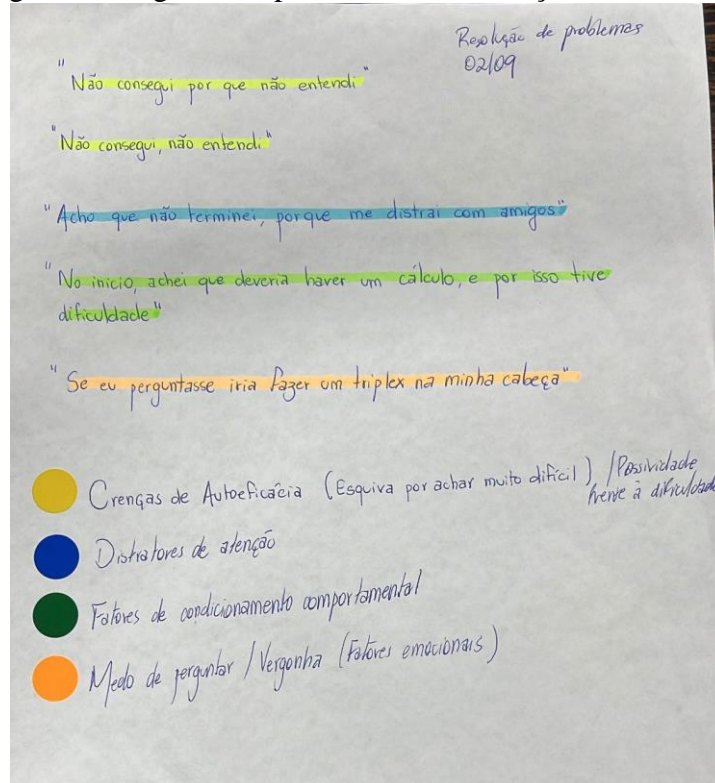 Resolução de problemas
02/09
"Não consegui por que não entendi"
"Não consegui, não entendi"
"Acho que não terminei, porque me distrai com amigos"
"No inicio, achei que deveria haver um cálculo, e por isso tive
dificuldade"
"Se eu perguntasse iria fazer um triplex na minha cabeça"
Crenças de Autoeficácia (Esquiva por achar muito difícil) / Passividade
frente à dificuldade
Distratores de atenção
Fatores de condicionamento comportamental
Medo de perguntar / Vergonha (Fatores emocionais)